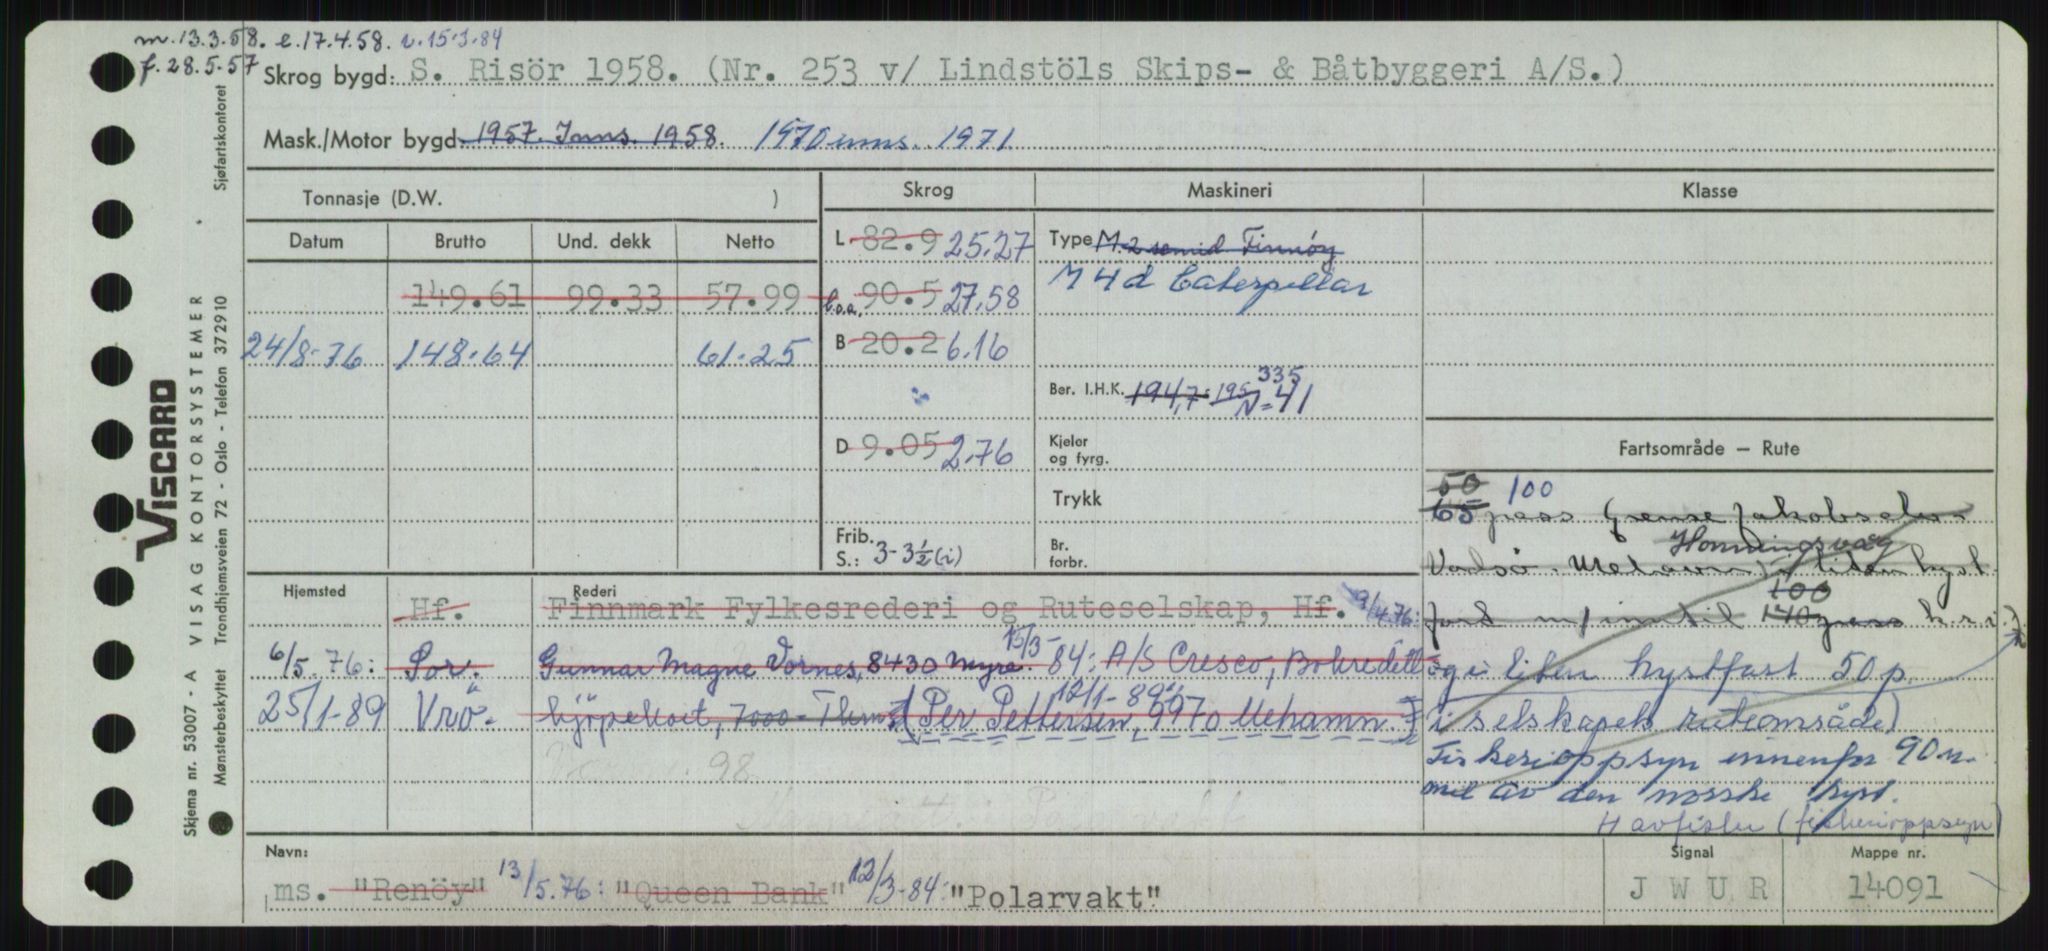 m.13.3.58. e.17.4.58. v.15.3.84
f.28.5.57
Skrog bygd: S. Risör 1958. (Nr. 253 v/ Lindstöls Skips- & Båtbyggeri A/S.)
Mask./Motor bygd. 1957. Inns. 1958. 1970 inns. 1971
Tonnasje (D.W. )
Skrog Maskineri Klasse
Datum Brutto Und. dekk Netto
L 82.9 25.27 Type M.2 semid Finnöy
M 4 d Caterpillar
149.61 99.33 57.99 l.o.a. 90.5 27,58
24/8-76 148.64 61.25 B 20.2 6.16
Ber. I.H.K. 194,7 = 195/N = 335/41
D 9.05 2.76 Kjeler og fyrg.
Trykk
Frib. S.: 3-3½ (i) Br. forbr.
Fartsområde – Rute
50 100
65 pass Grense Jakobselv-
Honningsvåg
Vadsö - Mehamn, i liten kyst
100
fart m/inntil 140 pass k.r.i.)
og i liten kystfart 50 p.
i selskapets ruteområde)
Fiskerioppsyn innenfor 90 n.
mil av den norske kyst.
Havfiske (fiskerioppsyn)
Hjemsted Rederi
Hf. Finnmark Fylkesrederi og Ruteselskap, Hf. 9/4.76:
6/5.76: Sor. Gunnar Magne Vornes, 8430 Myre. 15/3-84: A/S Cresco, Bokreditt
25/1-89 Vrö. kjöpekort, 7000 - Thm. [Per Pettersen, 9970 Mehamn.] 12/1-89:
98
Navn:
ms. "Renöy" 13/5.76: "Queen Bank" 12/3-84: "Polarvakt"
Signal
J W U R
Mappe nr.
14091
VISCARD
VISAG KONTORSYSTEMER
Skjema nr. 53007 - A
Mønsterbeskyttet
Trondhjemsveien 72 - Oslo - Telefon 372910
Sjøfartskontoret